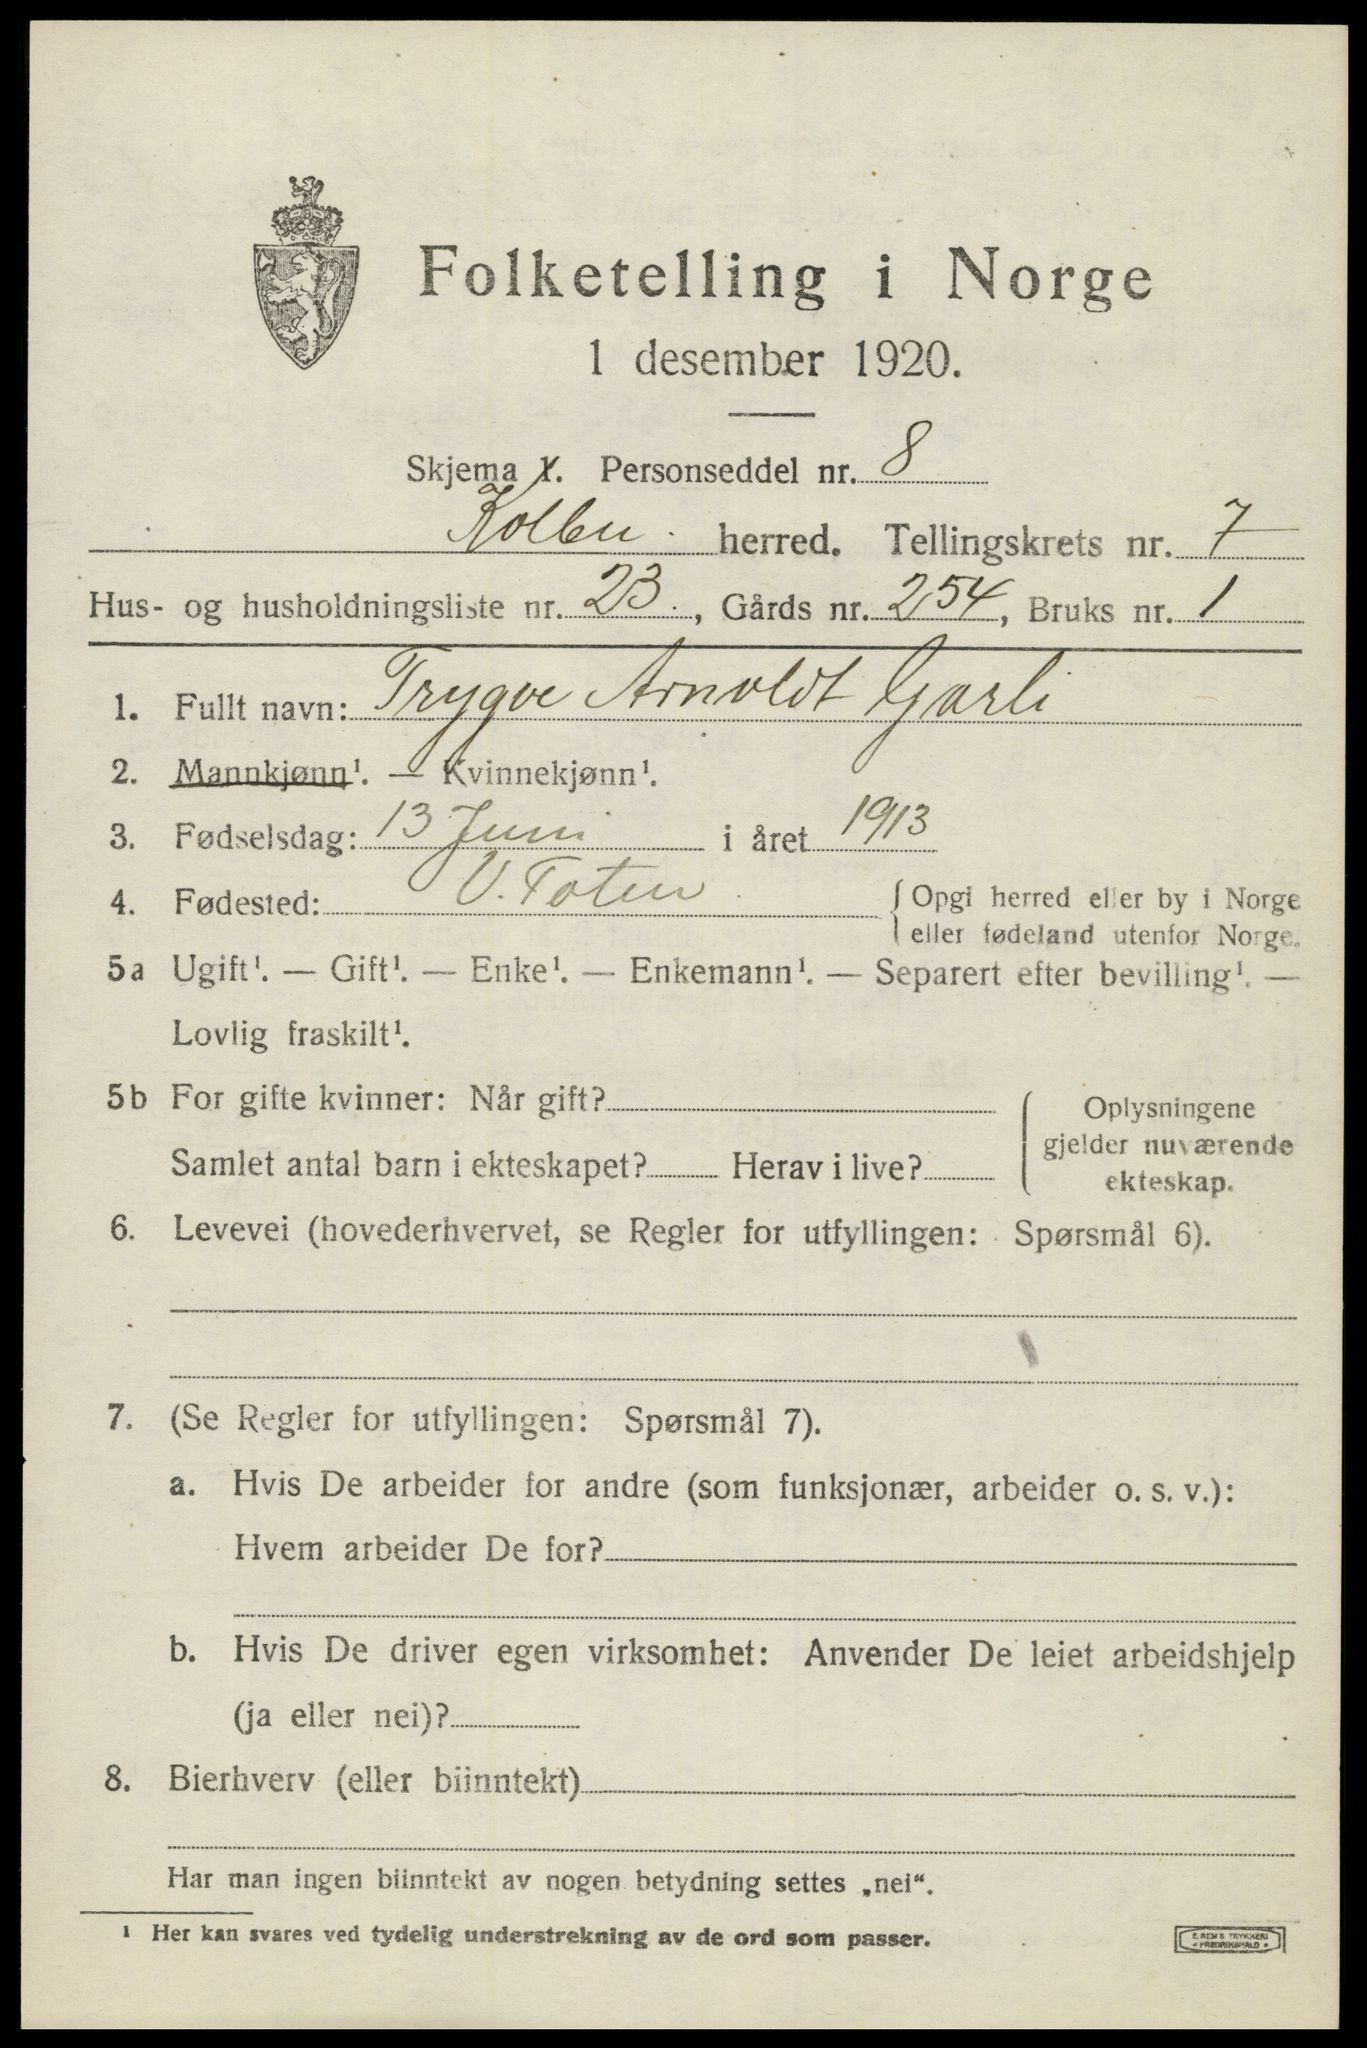 Folketelling i Norge
1 desember 1920.
Skjema 1. Personseddel nr. 8
Kolbu herred. Tellingskrets nr. 7
Hus- og husholdningsliste nr. 23., Gårds nr. 254, Bruks nr. 1
1. Fullt navn: Trygve Arnoldt Garli
2. Mannkjønn¹. — Kvinnekjønn¹.
3. Fødselsdag: 13 Juni i året 1913
4. Fødested: V. Toten { Opgi herred eller by i Norge
eller fødeland utenfor Norge.
5a Ugift¹. — Gift¹. — Enke¹. — Enkemann¹. — Separert efter bevilling¹. —
Lovlig fraskilt¹.
5b For gifte kvinner: Når gift?
Samlet antal barn i ekteskapet? Herav i live?
Oplysningene
gjelder nuværende
ekteskap.
6. Levevei (hovederhvervet, se Regler for utfyllingen: Spørsmål 6).
7. (Se Regler for utfyllingen: Spørsmål 7).
a. Hvis De arbeider for andre (som funksjonær, arbeider o. s. v.):
Hvem arbeider De for?
b. Hvis De driver egen virksomhet: Anvender De leiet arbeidshjelp
(ja eller nei)?
8. Bierhverv (eller biinntekt)
Har man ingen biinntekt av nogen betydning settes „nei“.
¹ Her kan svares ved tydelig understrekning av de ord som passer.
E. SEM'S TRYKKERI
FREDRIKSHALD